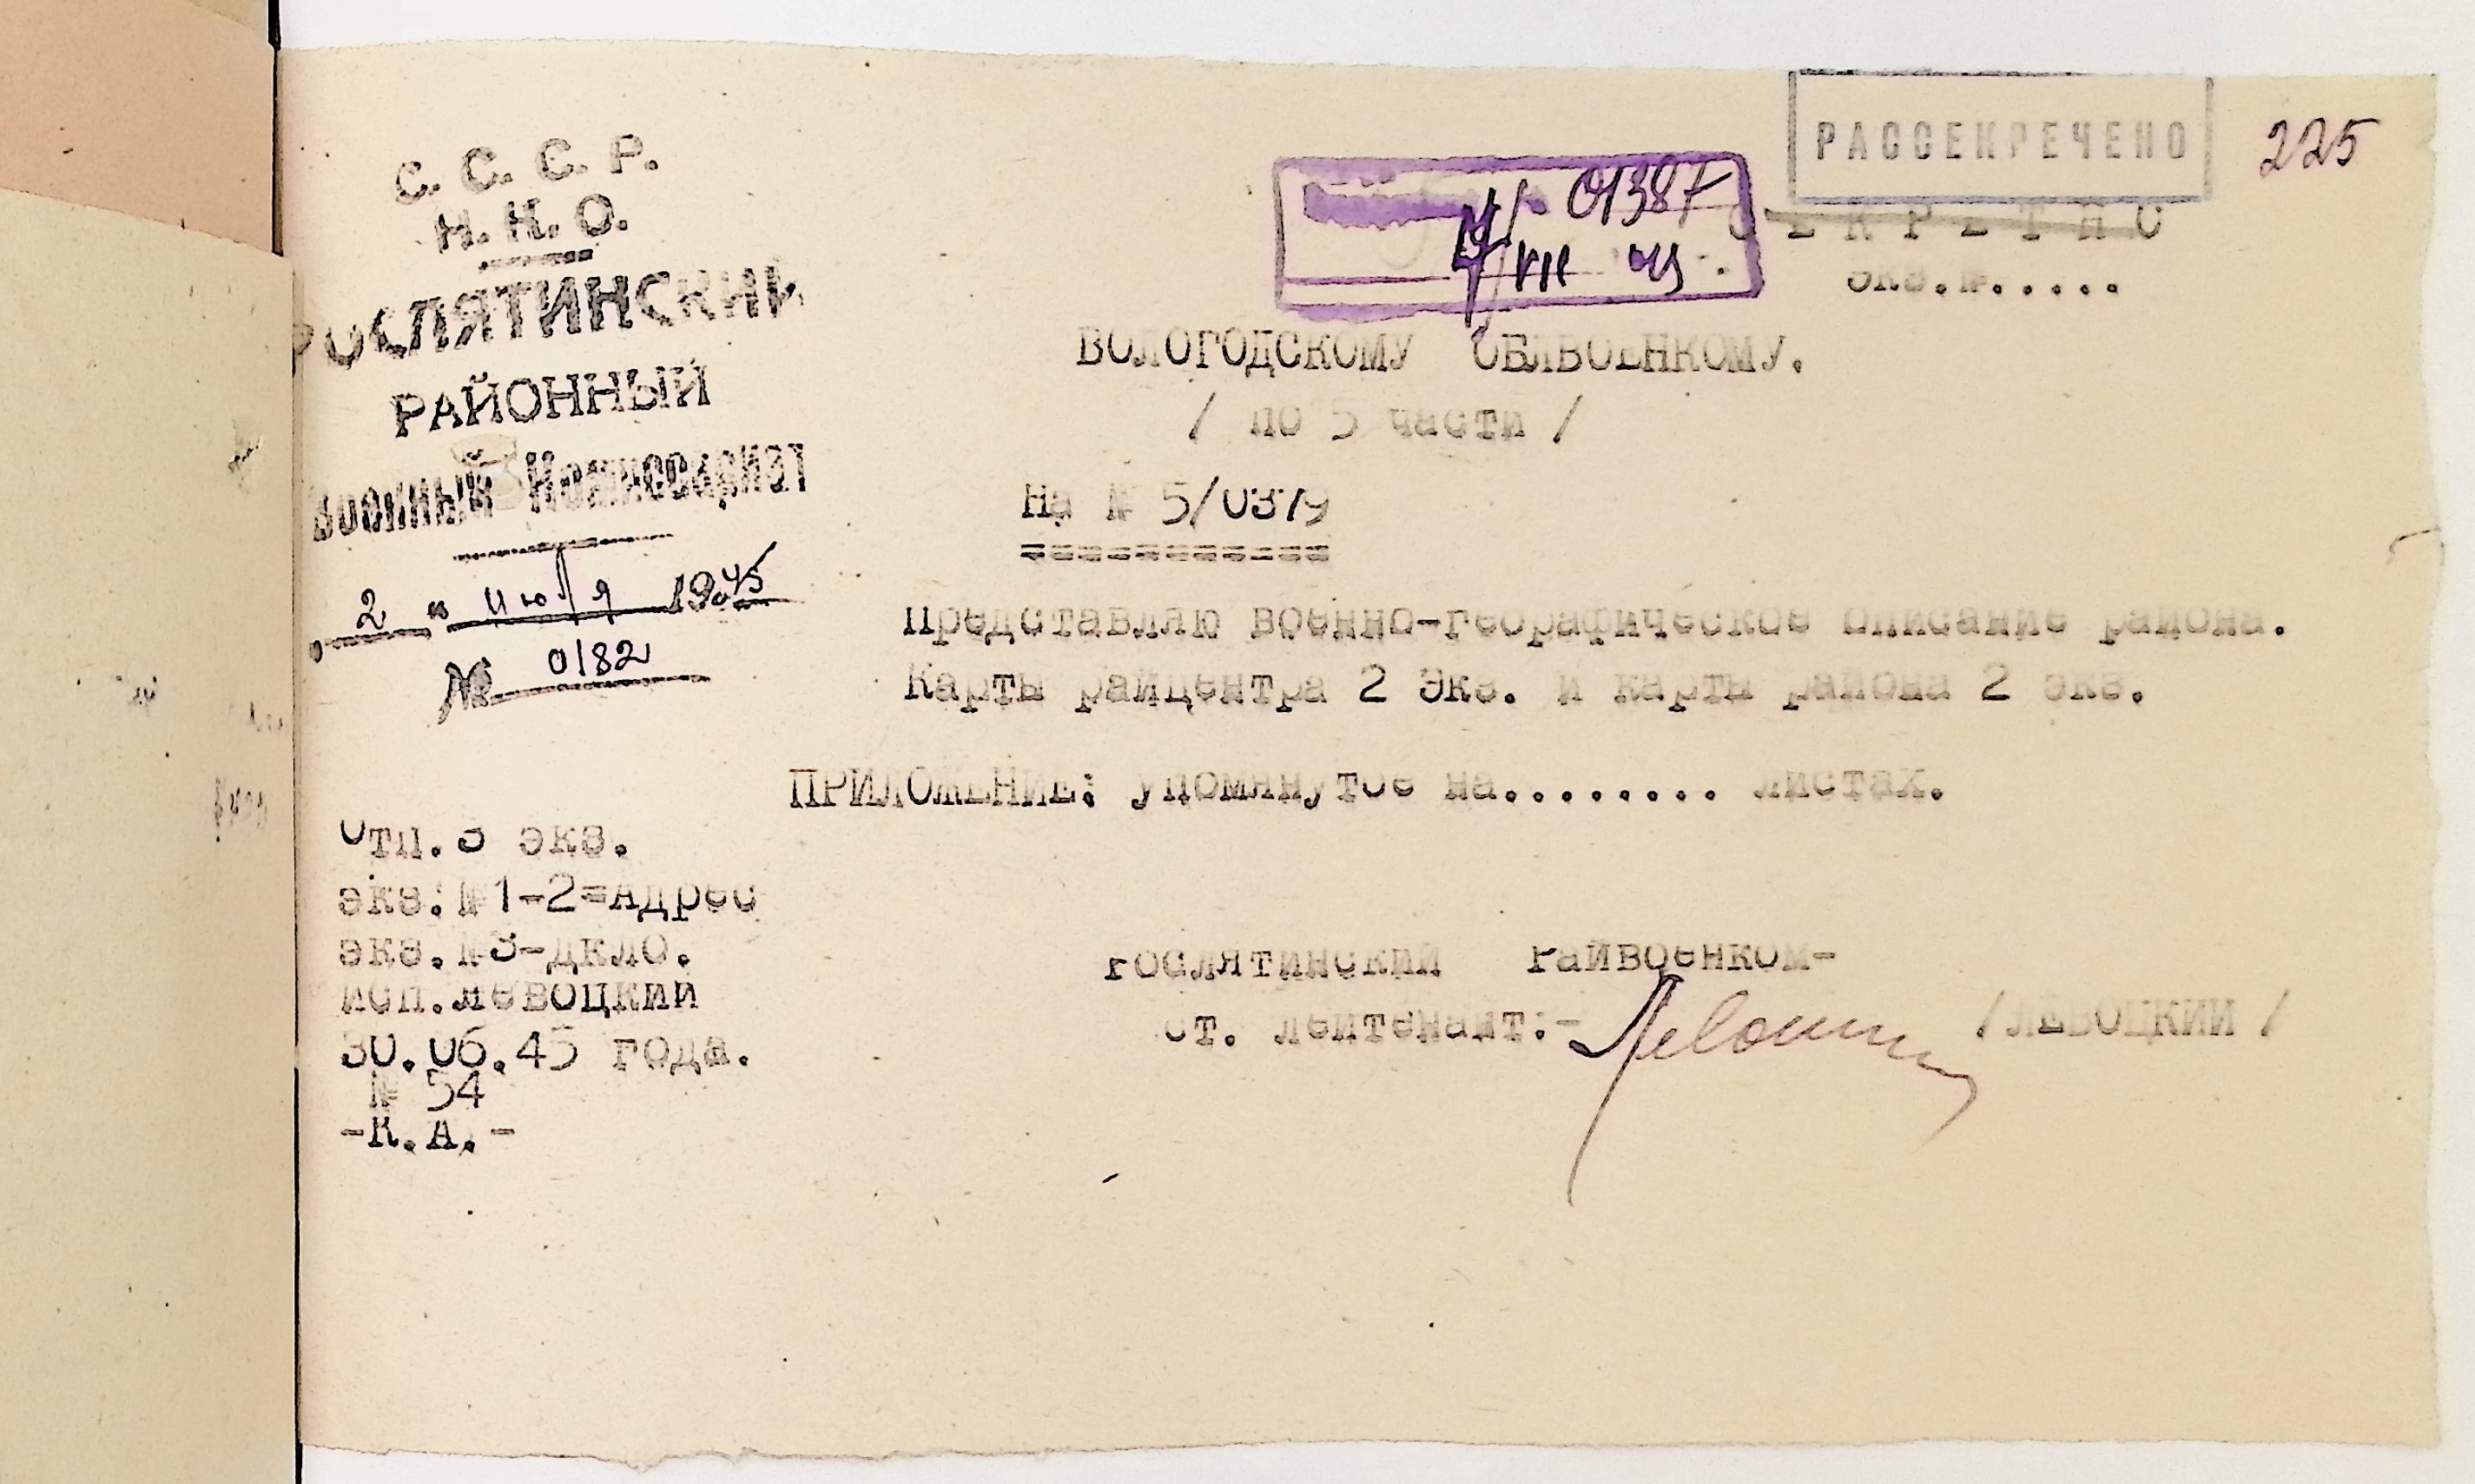 С. С. С. Р.
Н. К. О.
РОСЛЯТИНСКИЙ
РАЙОННЫЙ
Военный Комиссариат
" 2 " июля 1945
№ 0182
01387
VII 45.
РАССЕКРЕЧЕНО
225
С Е К Р Е Т Н О
Экз.№.....
ВОЛОГОДСКОМУ ОБЛВОЕНКОМУ.
/ по 5 части /
На № 5/0379
===========
Представляю военно-географическое описание района.
Карты райцентра 2 Экз. и карты района 2 экз.
ПРИЛОЖЕНИЕ: упомянутое на........ листах.
Отп.3 экз.
экз:№1-2=Адрес
экз.№3-дкло.
исп.Левоцкий
30.06.45 года.
№ 54
-К.А.-
Рослятинский Райвоенком-
Ст. лейтенант:-
/ЛЕВОЦКИЙ /